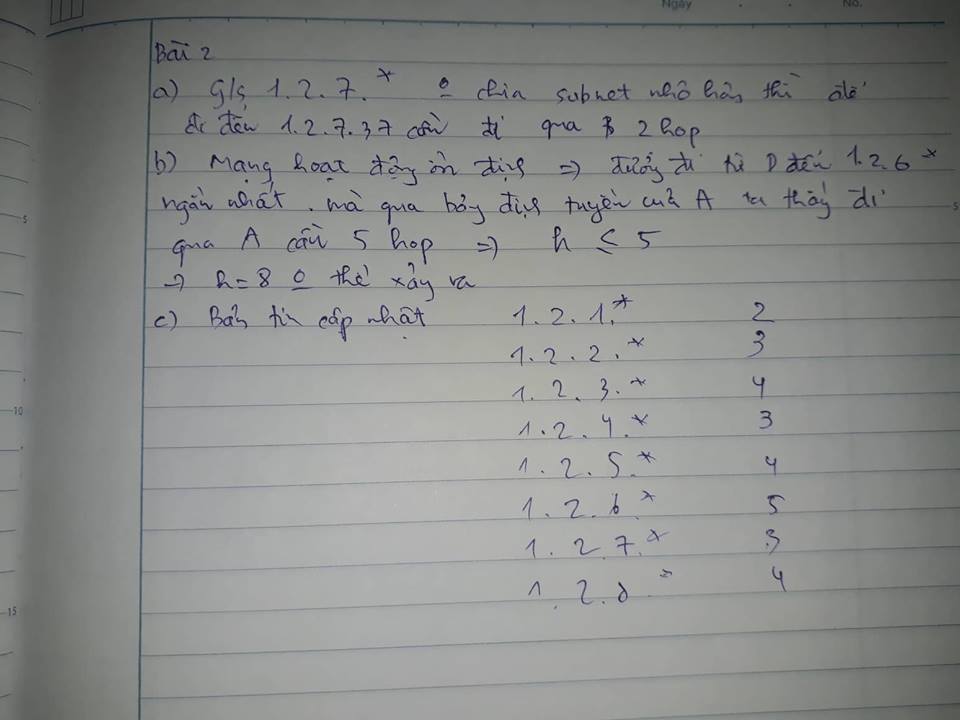 Ngày No.
Bài 2
a) G/s 1.2.7.* o chia subnet nhỏ hơn thì để
đi đến 1.2.7.37 cần đi qua 2 hop
b) Mạng hoạt động ổn định => đường đi từ D đến 1.2.6*
ngắn nhất. mà qua bảng định tuyến của A ta thấy đi
qua A cần 5 hop => h ≤ 5
=> h = 8 o thể xảy ra
c) Bản tin cập nhật 1.2.1.* 2
1.2.2.* 3
1.2.3.* 4
1.2.4.* 3
1.2.5.* 4
1.2.6.* 5
1.2.7.* 3
1.2.8 4
5
10
15
5